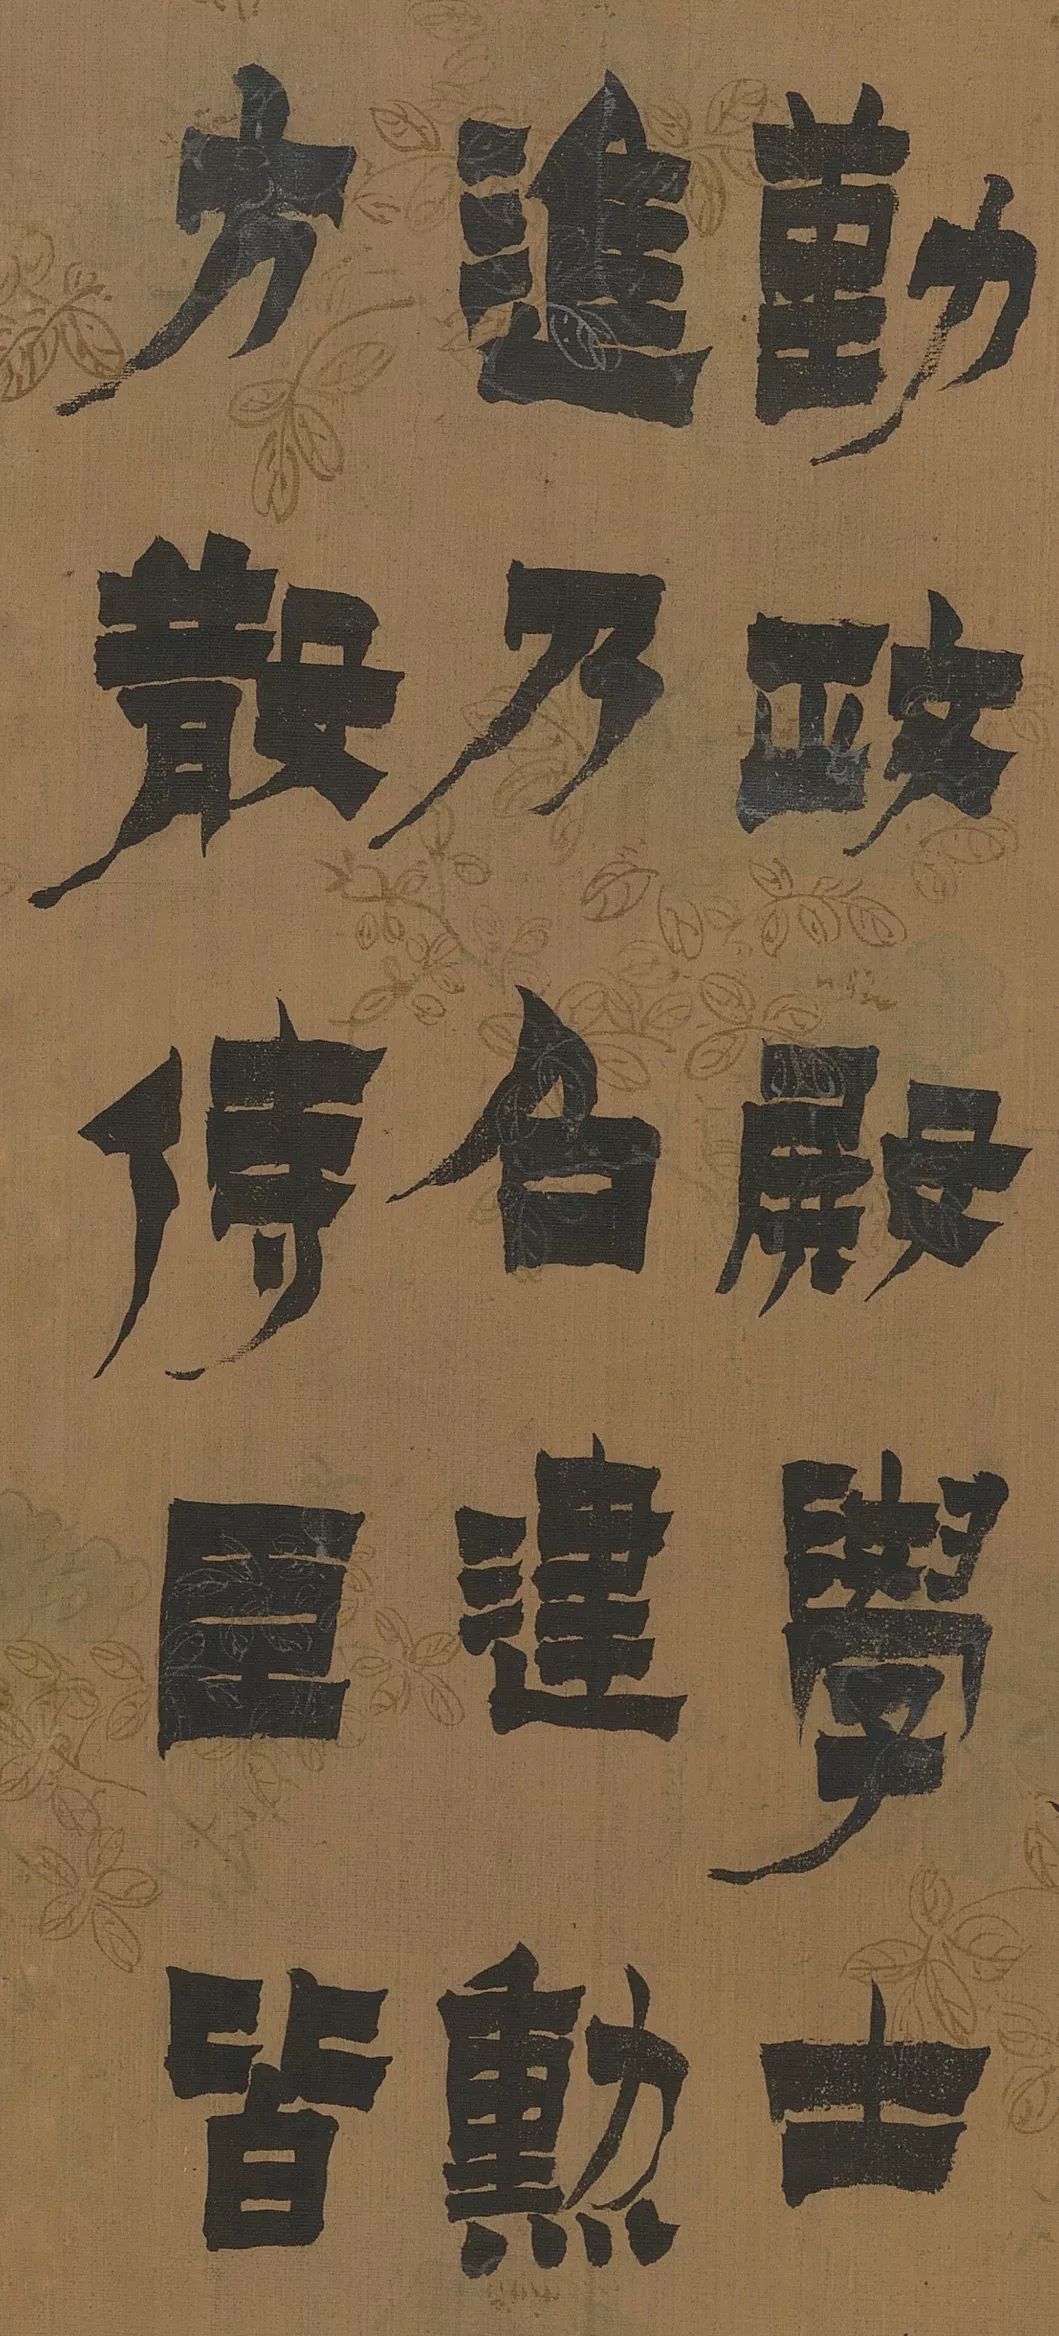 勤政殿學士
進乃名建勳
方散傳臣皆